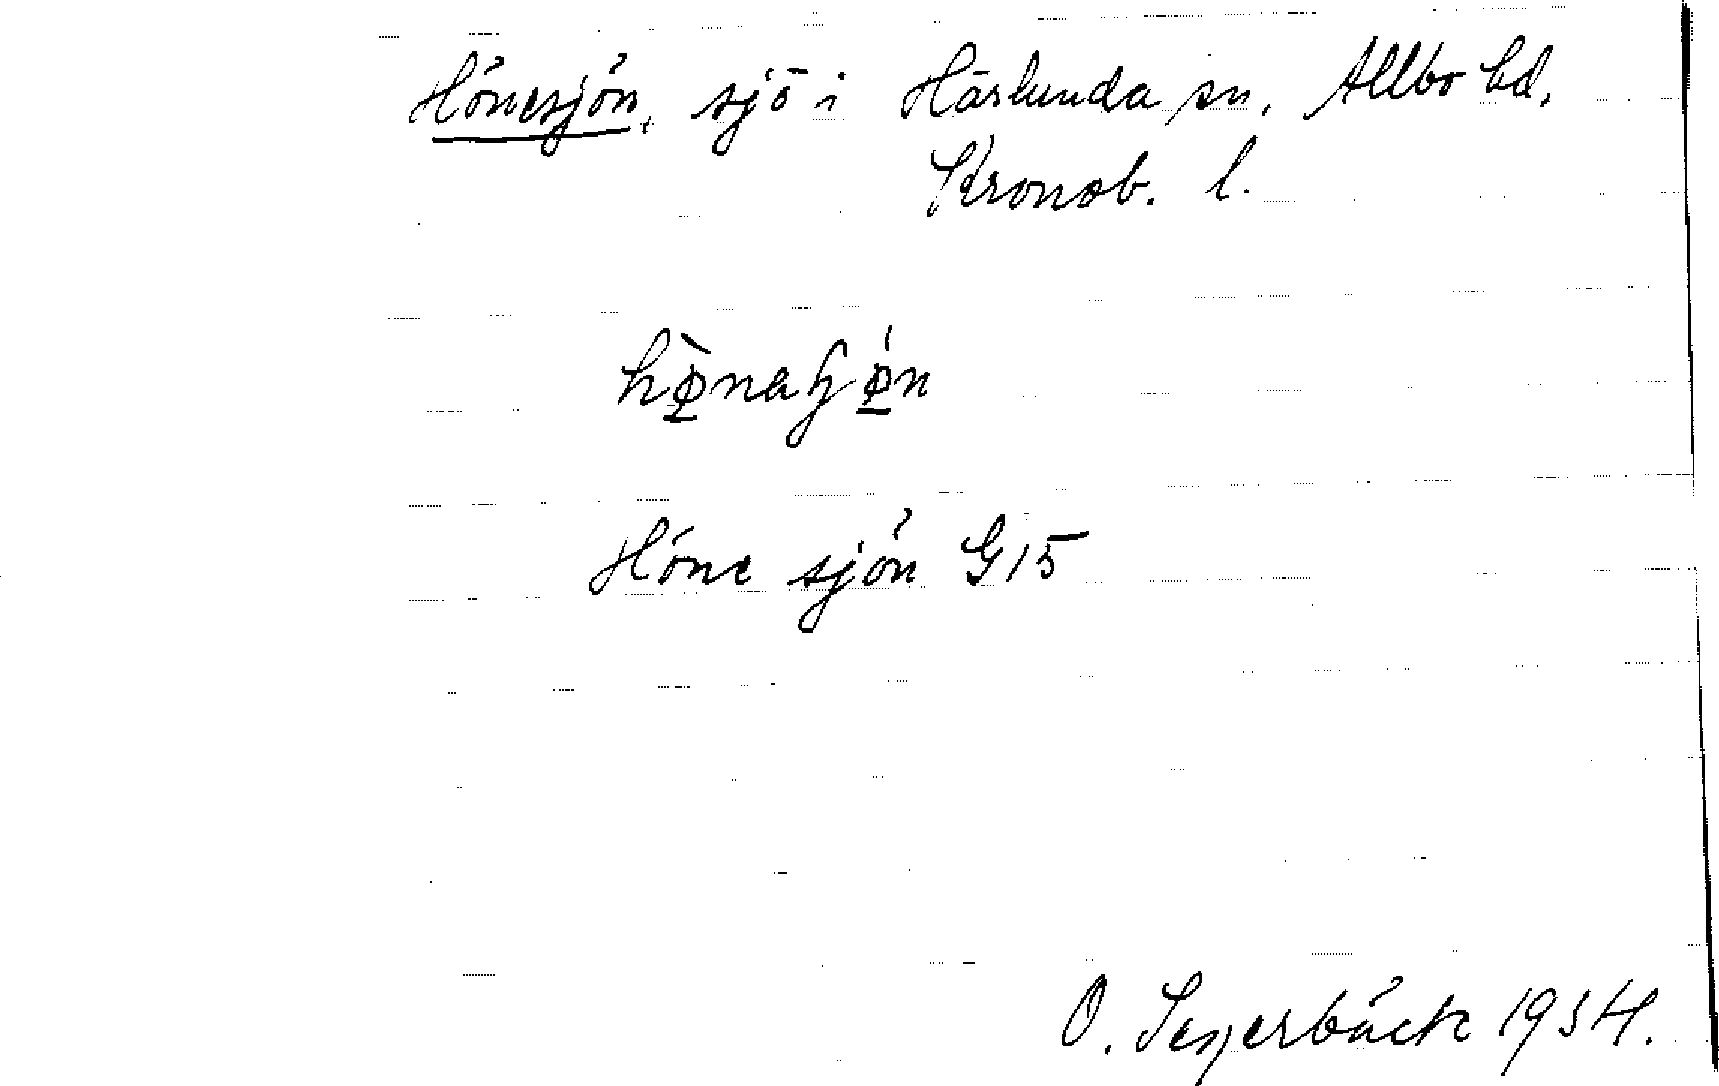 Hönesjön, sjö i Härlunda sn, Allbo hd,
Kronob. l.
hø̀naɧǿn
Höne sjön G15
O. Segerbäck 1934.